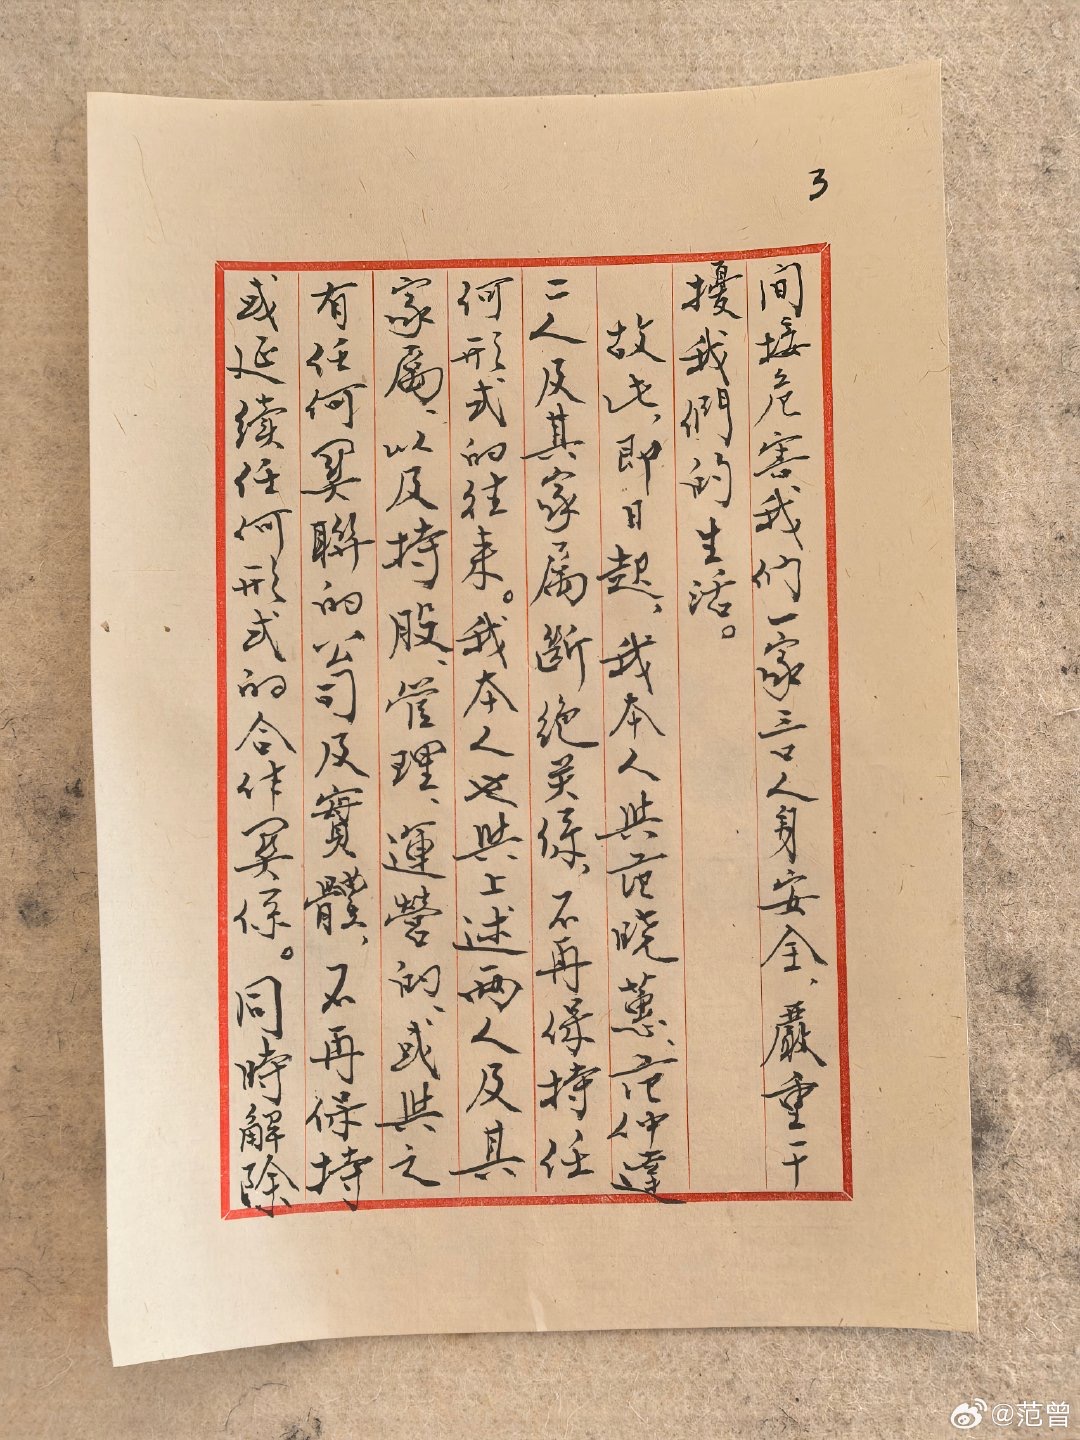 3
间接危害我们一家三口人身安全、嚴重干
擾我們的生活。
故此、即日起、我本人與范晓蕙、范仲達
二人及其家属斷绝关係、不再保持任
何形式的往来。我本人也與上述两人及其
家属、以及持股、管理、運营的、或與之
有任何関聯的公司及實體、不再保持
或延续任何形式的合作関係。同時解除
@范曾